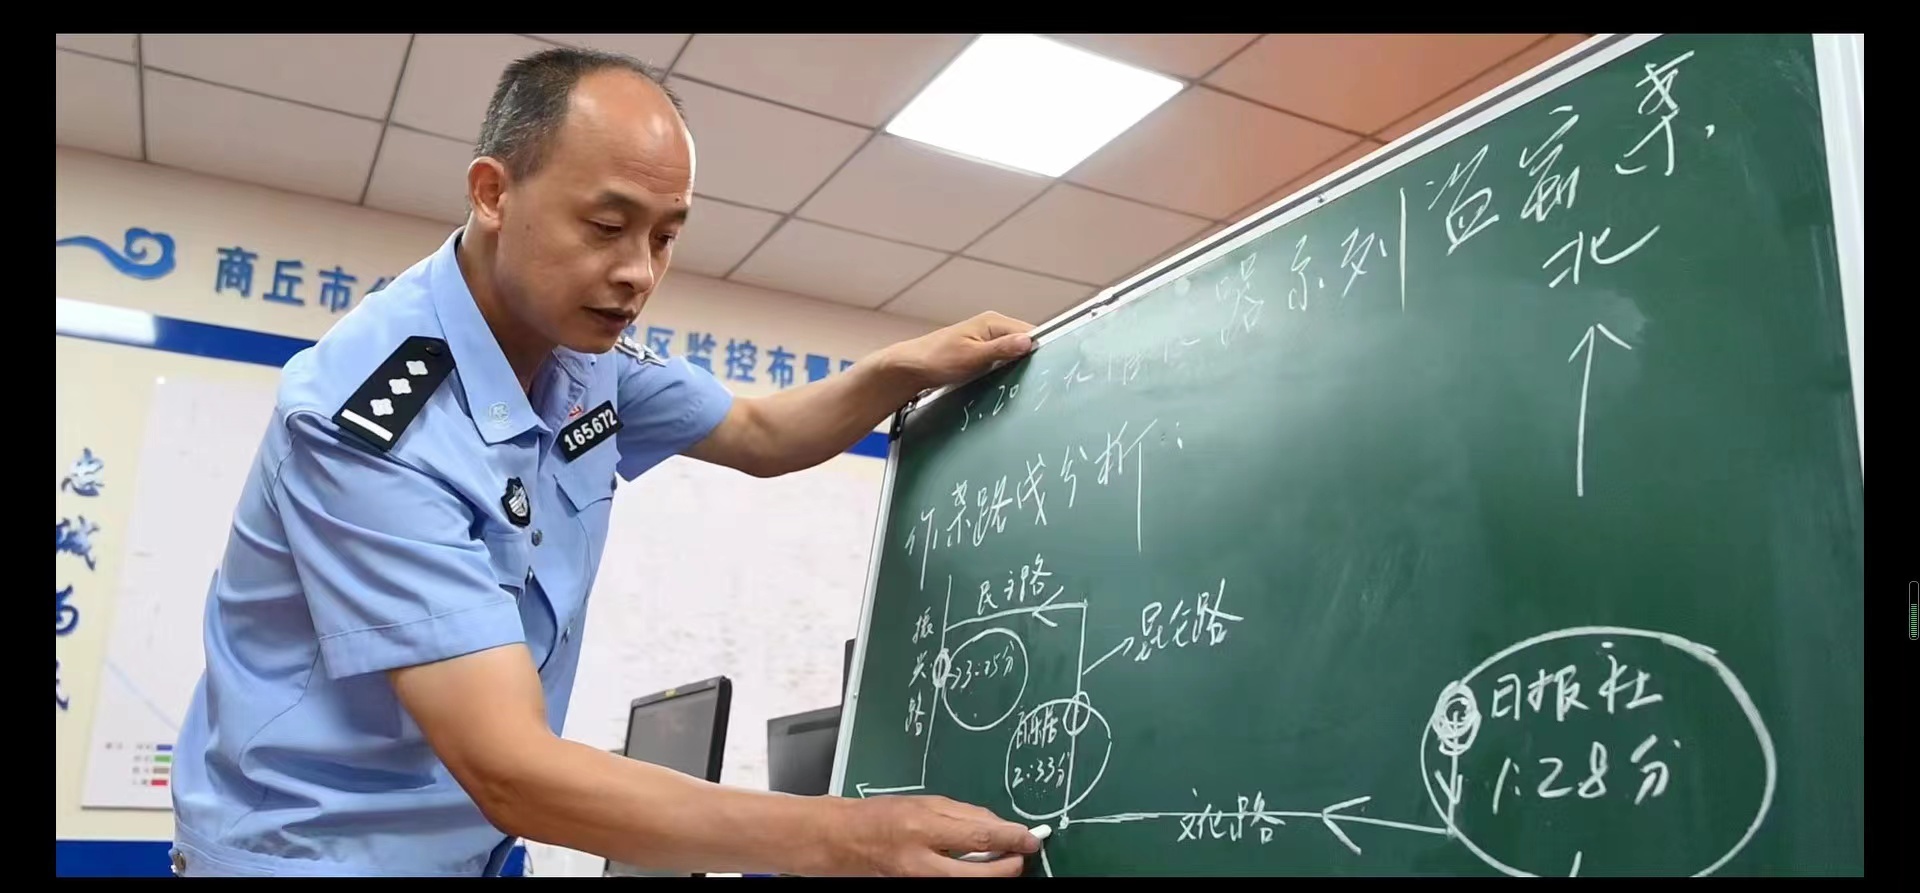 商丘市
区监控布置
忠
诚
为
民
165672
5.20三元催化器系列盗窃案
北
作案路线分析:
民主路
昆仑路
振兴路
3:35分
2:33分
文化路
日报社
1:28分